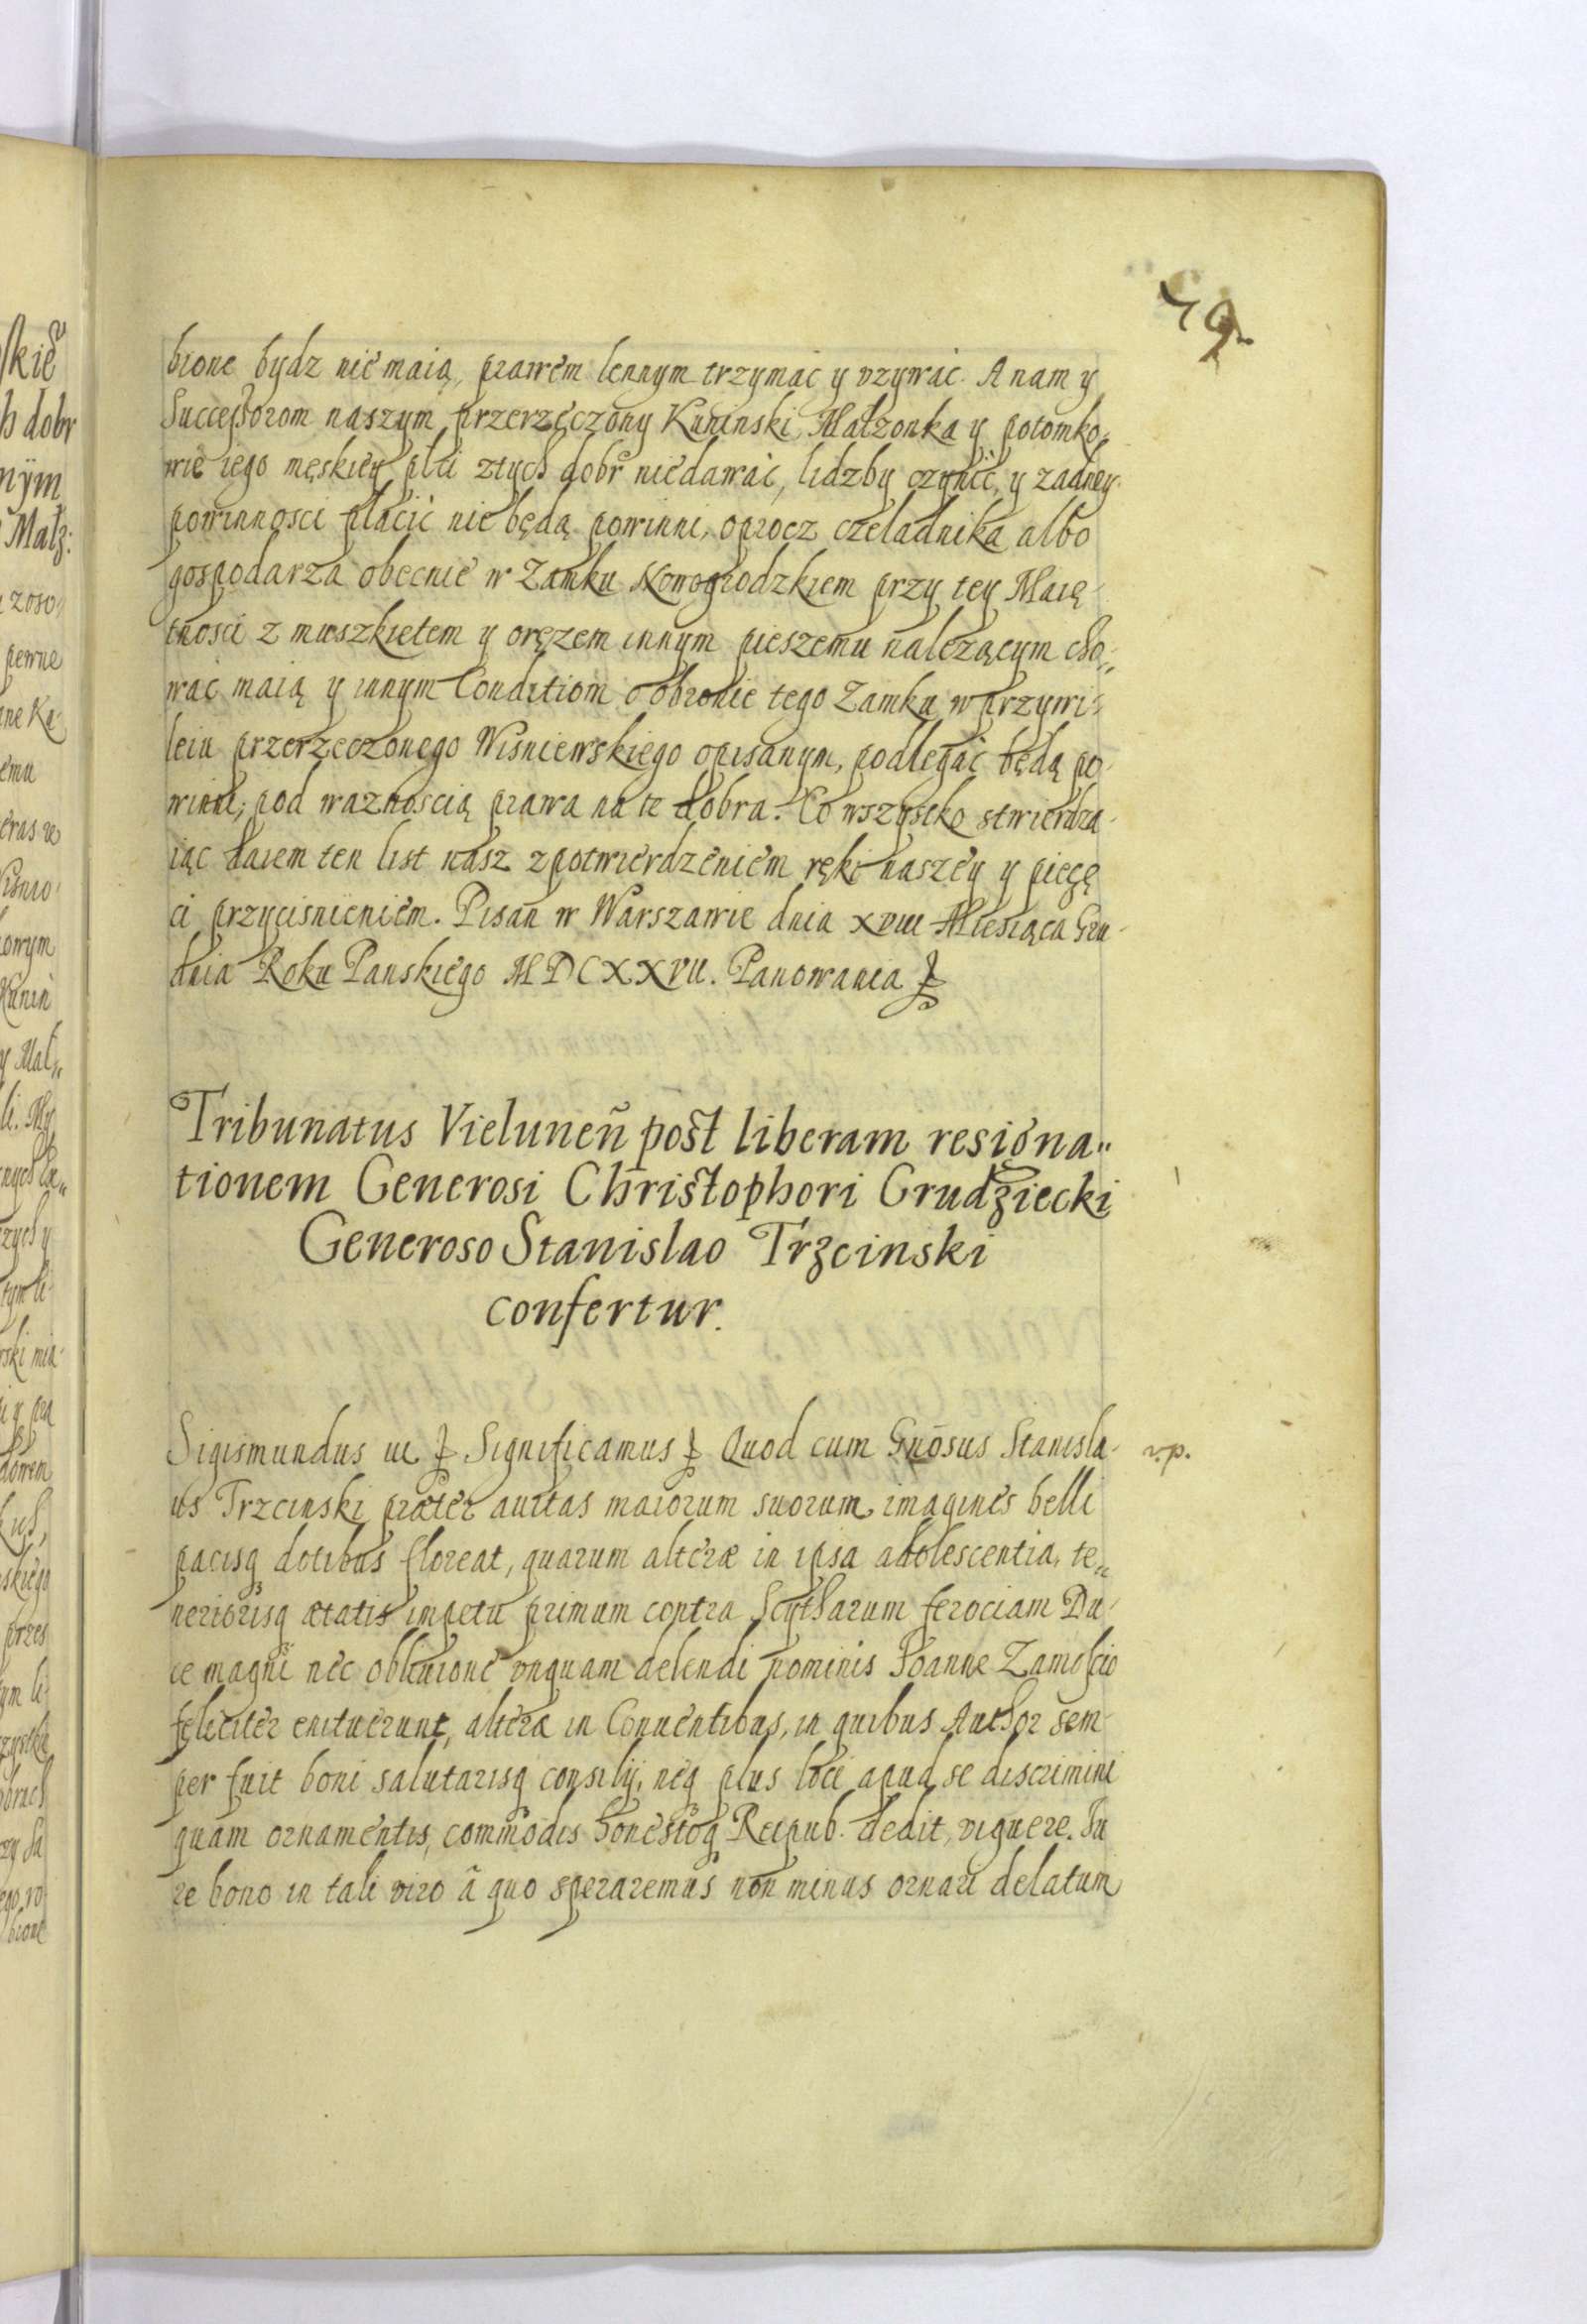 49
bione bydz nie maią, prawem lennym trzymac y vzywac. A nam y
Successorom naszym przerzeczony Kuninski, Małzonka y potomko„
wie iego męskiey płci ztych dobr niedawać, lidzby czynić, y zadney
powinnosci płacić nie będą powinni, oprocz czeladnika albo
gospodarza obecnie w Zamku Nowogrodzkiem przy tey Maię-
tnosci z muszkietem y oręzem innym pieszemu nalezącym cho„
wac maią y innym Conditiom o obronie tego Zamku w przywi-
leiu przerzeczonego Wisniewskiego opisanym, podlegać będą po-
winni, pod waznoscią prawa na te dobra. Co wszystko stwierdza-
iąc daiem ten list nasz z potwierdzeniem ręki naszey y pieçę
ci przycisnieniem. Pisan w Warszawie dnia xviii Miesiąca Gru-
dnia Roku Panskiego MDCXXVII. Panowania
Tribunatus Vieluneñ post liberam resigna„
tionem Generosi Christophori Grudziecki
Generoso Stanislao Trzcinski
confertur.
Sigismundus iii Significamus Quod cum Gnōsus Stanisla-
us Trzcinski præter auitas maiorum suorum imagines belli
pacisq dotibus floreat, quarum alteræ in ipsa adolescentia, te„
neriorisq ætatis impetu primum contra Scytharum ferociam Du-
ce magni nec obliuione vnquam delendi nominis Joanne Zamoscio
feliciter enituerunt, alteræ in Conuentibus, in quibus Author sem-
per fuit boni salutarisq consilij, neq plus loci apud se discrimini
quam ornamentis, commodis honestoq Reipub. dedit, viguere. Iu
re bono in tali viro â quo speraremus non minus ornari delatum
v.p.